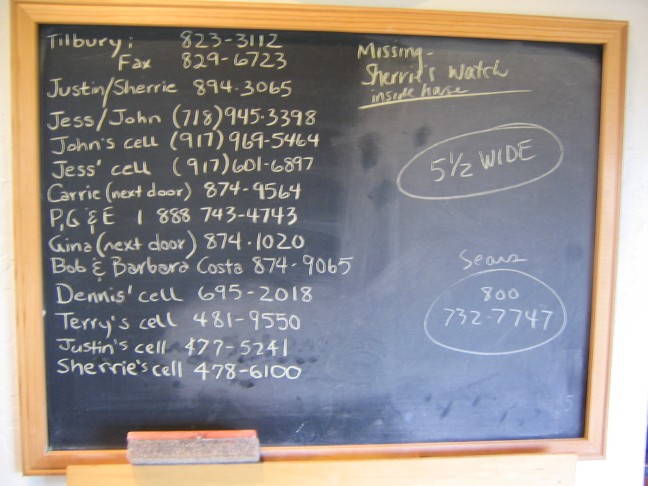 Tilbury: 823-3112
Fax 829-6723
Justin/Sherrie 894-3065
Jess/John (718)945-3398
John's cell (917)969-5464
Jess' cell (917)601-6897
Carrie (next door) 874-9564
P,G & E 1 888 743-4743
Gina (next door) 874-1020
Bob & Barbara Costa 874-9065
Dennis' cell 695-2018
Terry's cell 481-9550
Justin's cell 477-5241
Sherrie's cell 478-6100
Missing-
Sherrie's Watch
inside house
5½ WIDE
Sears
800
732-7747